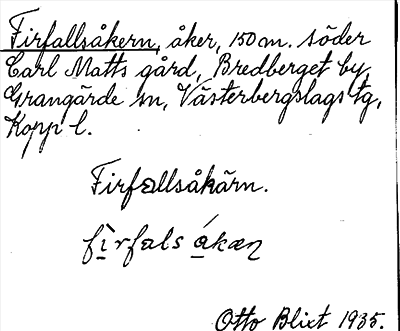 Firfallsåkern, åker, 150 m. söder
Carl Matts gård, Bredberget by,
Grangärde sn, Västerbergslags tg,
Kopp l.
Firfallsåkärn.
fìrfals ákæɳ
Otto Blixt 1935.